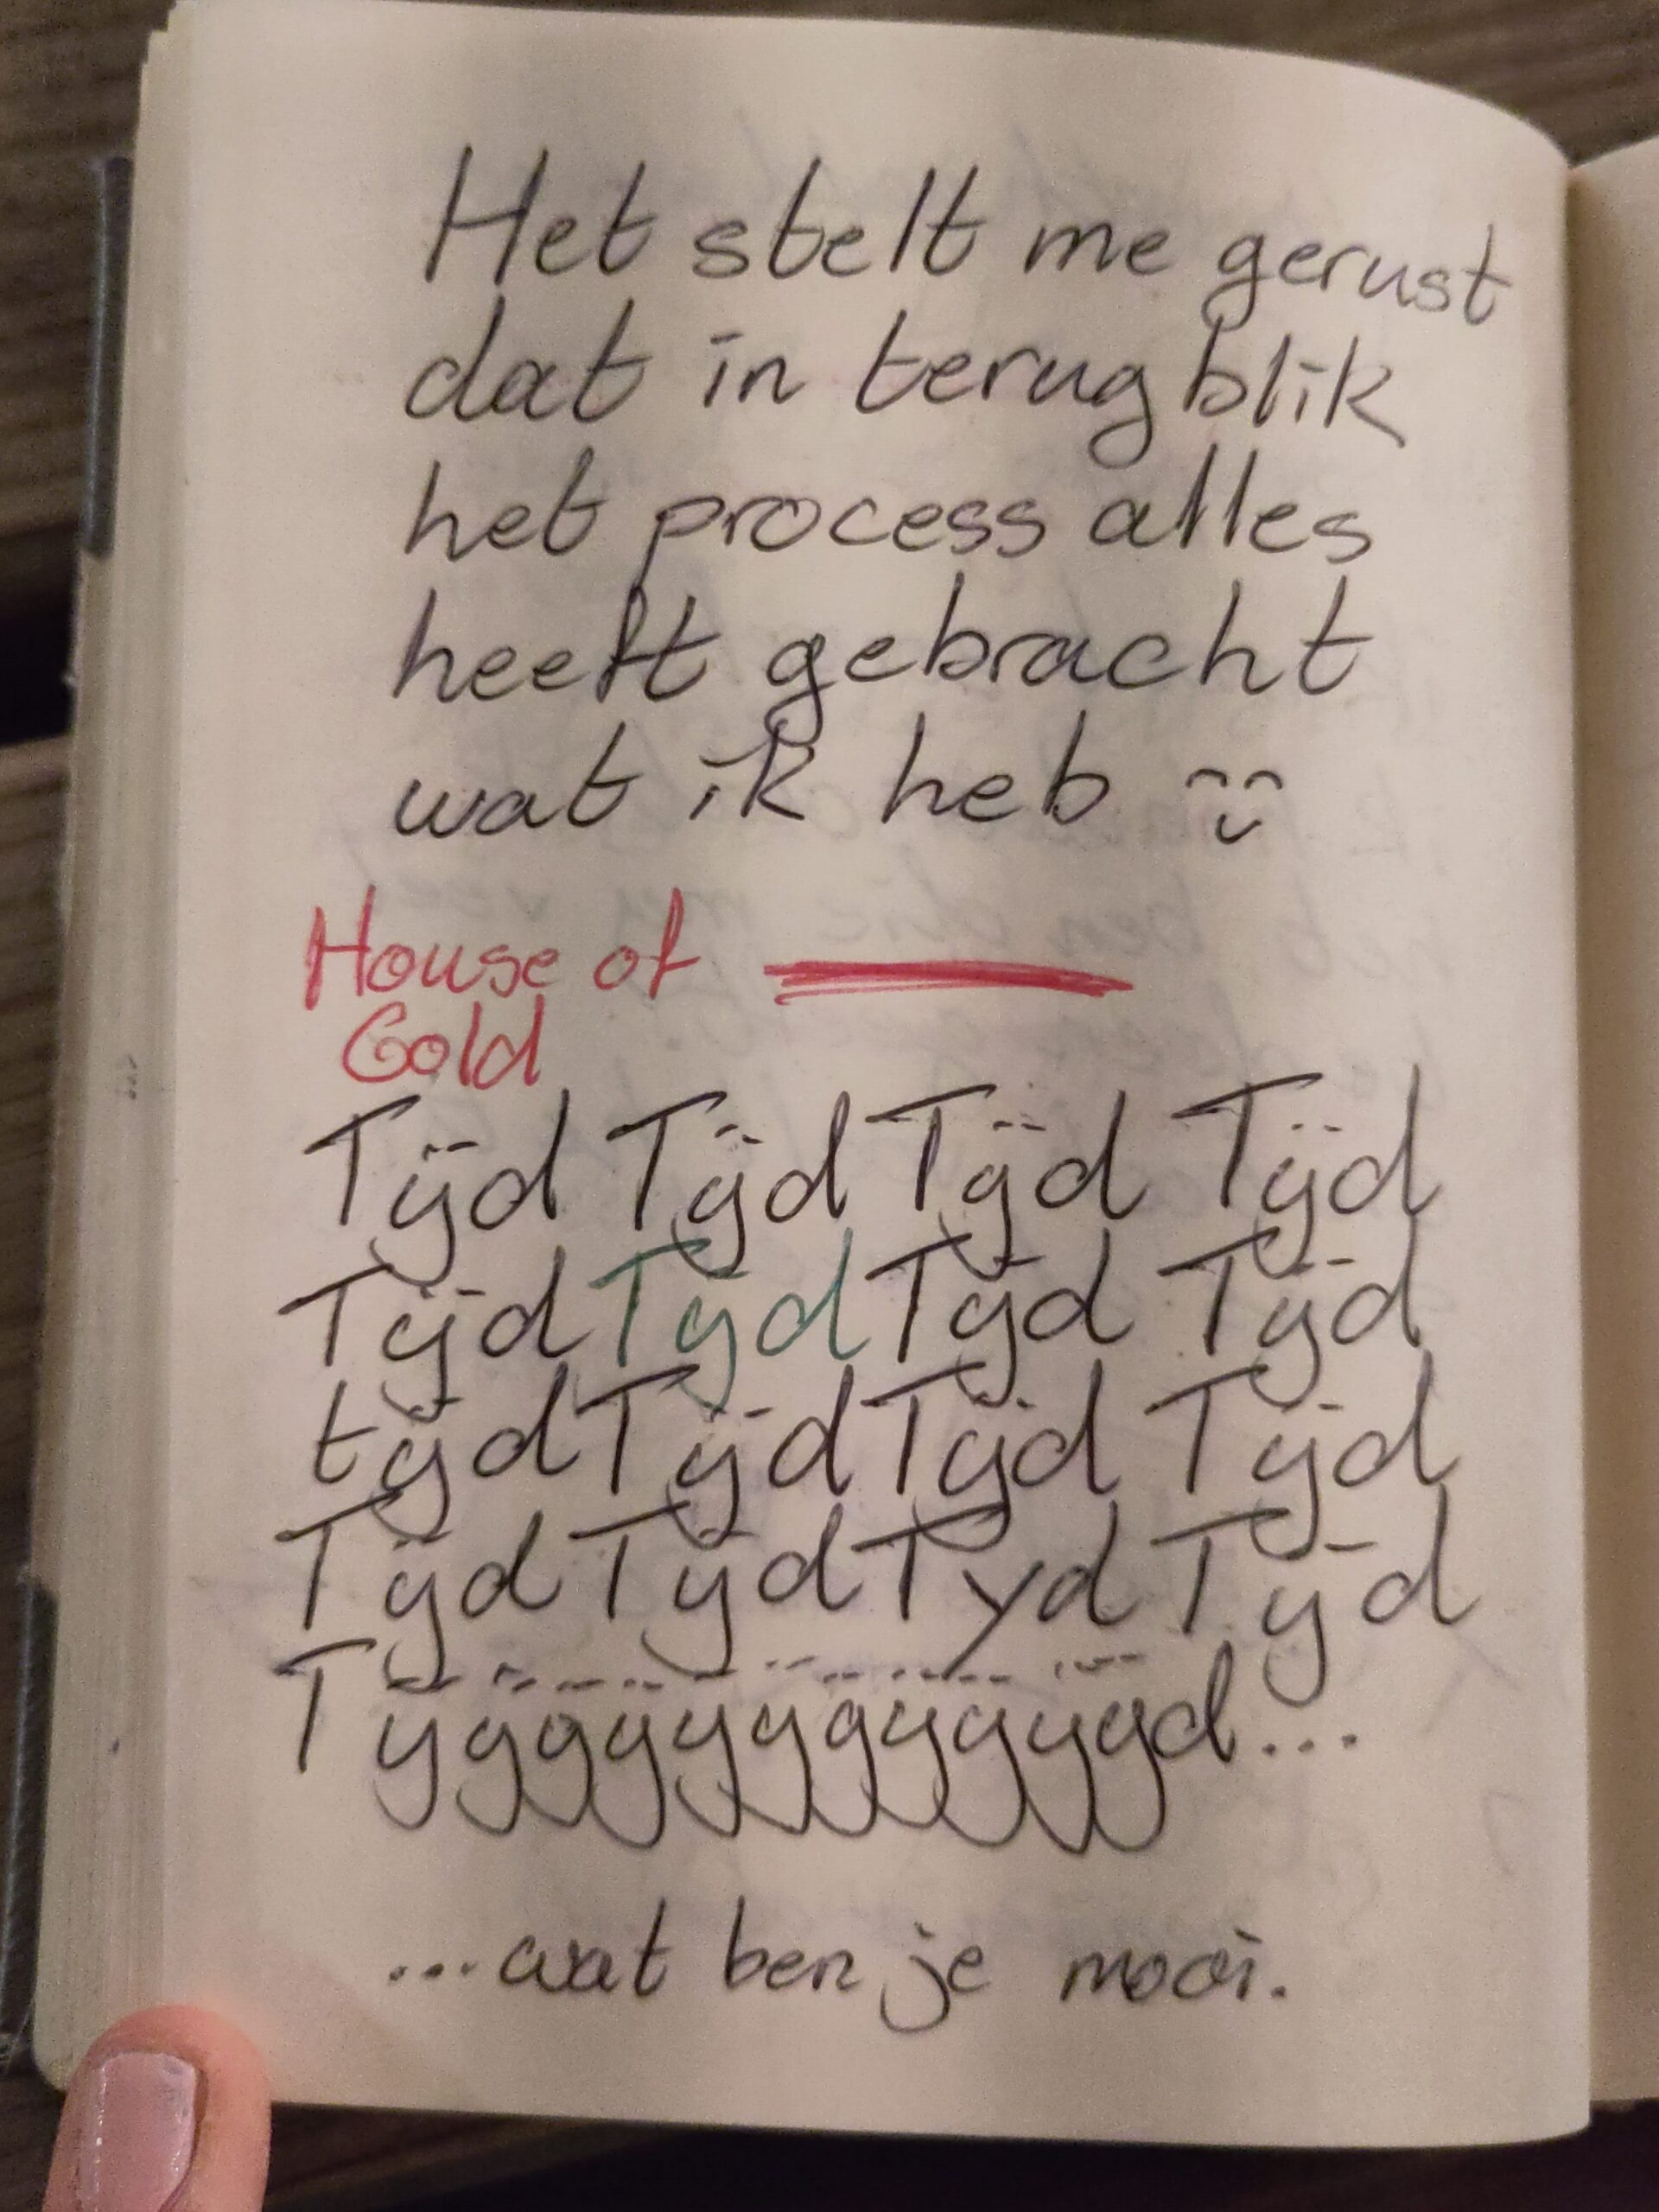 Het stelt me gerust
dat in terugblik
het process alles
heeft gebracht
wat ik heb
House of
Gold
Tijd Tijd Tijd Tijd
Tijd Tijd Tijd Tijd
tijd Tijd Tijd Tijd
Tijd Tijd Tyd Tijd
Tijijijijijijijijijijijd...
...wat ben je mooi.